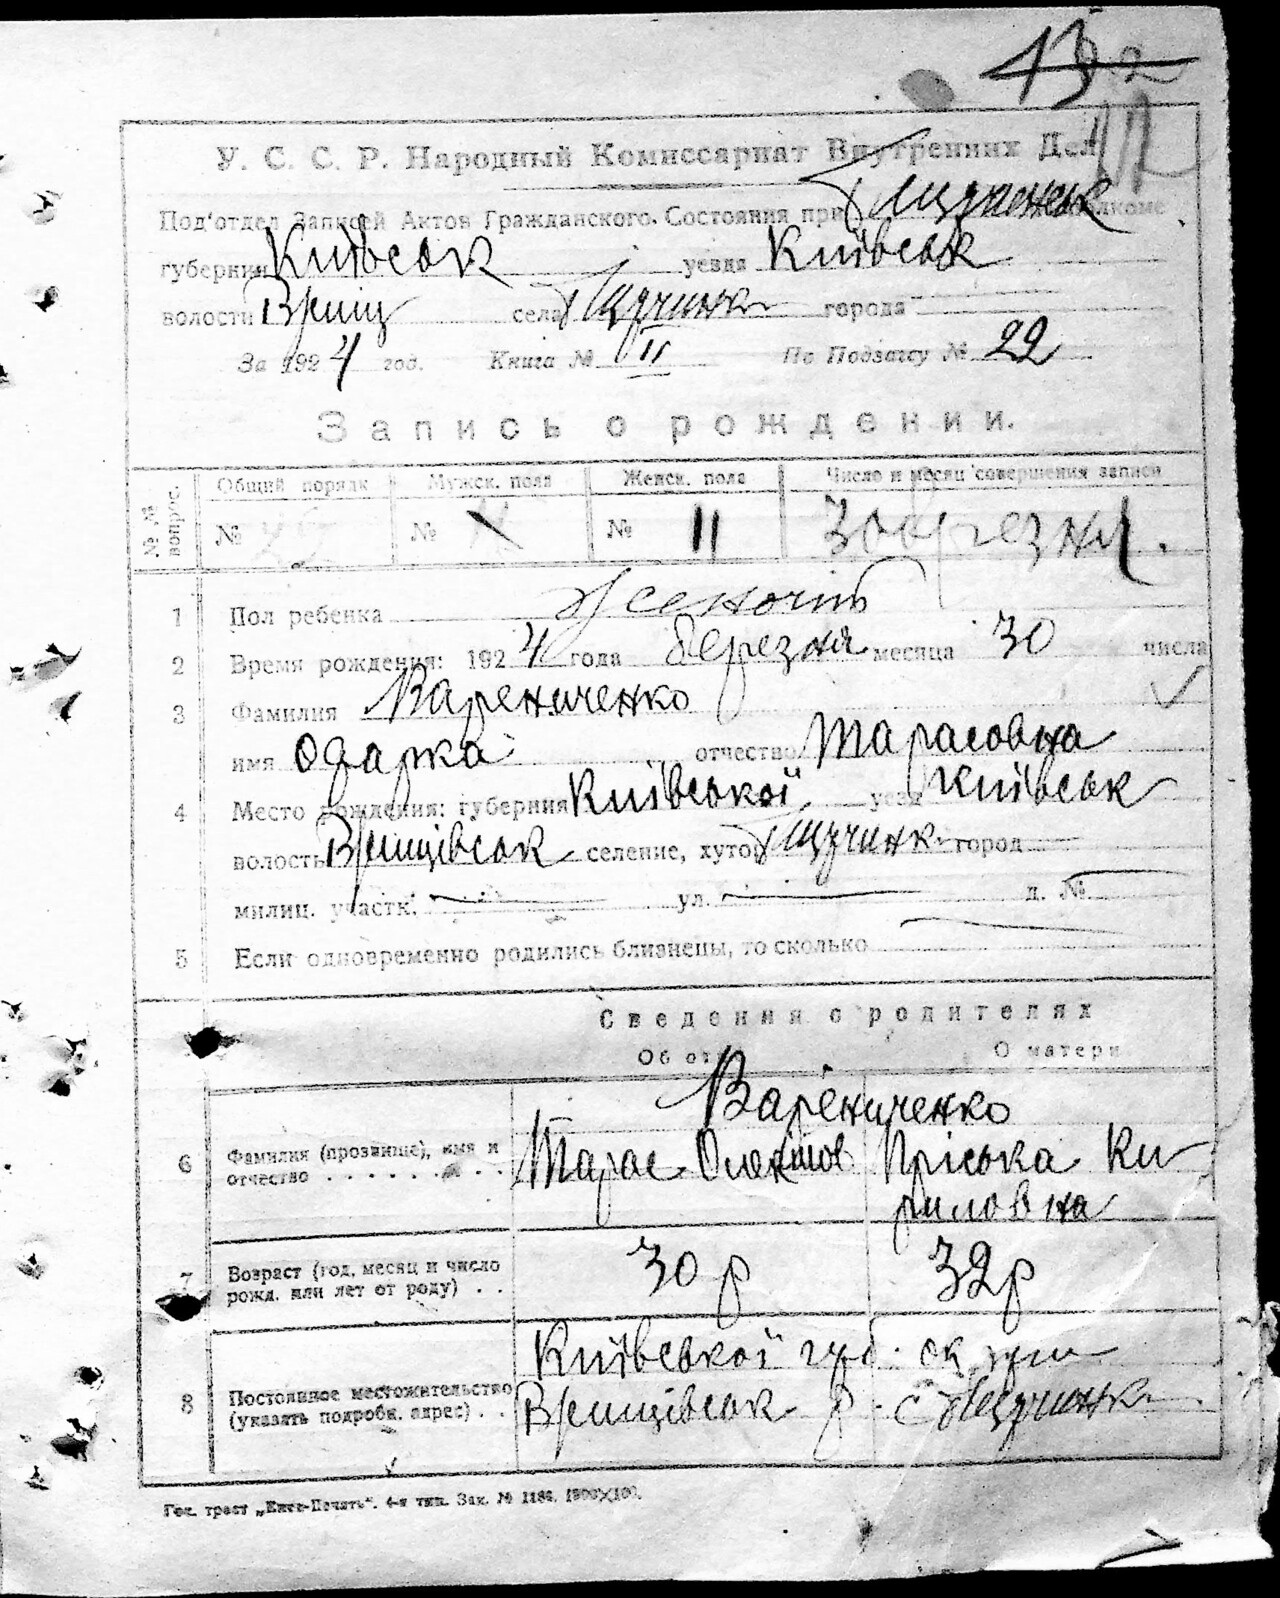 132
У. С. С. Р. Народный Комиссариат Внутренних Дел
Под'отдел Записей Актов Гражданского Состояния при
губернии Київськ уезда Київськ
волости села города
За 1924 год. Книга № II По Подзагсу № 22
Запись о рождении.
№№ вопрос. Общий порядк Мужск. пола Женск. пола Число и месяц совершения записи
№ 22 № № 11 30 березня.
1 Пол ребенка жіночій
2 Время рождения: 1924 года березня месяца 30 числа
3 Фамилия Варениченко
имя Одарка отчество Тарасовна
4 Место рождения: губерния Київської уезд Київськ
волость селение, хутор город
милиц. участк. ул. д. №
5 Если одновременно родились близнецы, то сколько
Сведения о родителях
Об от О матери
Варениченко
6 Фамилия (прозвище), имя и отчество Тарас Пріська Ки
риловна
7 Возраст (год, месяц и число рожд. или лет от роду) 30 р 32 р
Київської губ. округи
8 Постоянное местожительство (указать подробн. адрес) р. с.
Гос. трест „Киев-Печать". 4-я тип. Зак. № 1186.